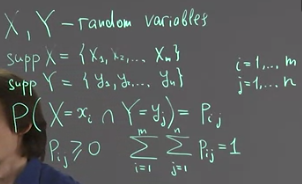 X, Y - random variables
supp X = { x₁, x₂, ... xₘ }
supp Y = { y₁, y₂, ... yₙ }
i = 1, ... m
j = 1, ... n
P( X = xᵢ ∩ Y = yⱼ ) = Pᵢⱼ
Pᵢⱼ ≥ 0 ∑ᵢ₌₁ᵐ ∑ⱼ₌₁ⁿ Pᵢⱼ = 1